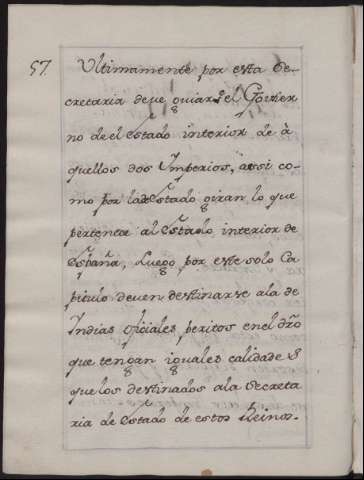 57. Ultimamente por esta Se-
cretaria deve guiarse el Govier
no de el Estado interior de à
quellos dos Imperios, assi co-
mo por la de Estado giran lo que
pertenece al Estado interior de
España, Luego por este solo Ca
pitulo deven destinarse a la de
Indias oficiales peritos en el dro
que tengan iguales calidades
que los destinados a la Secreta
ria de Estado de estos Reinos.